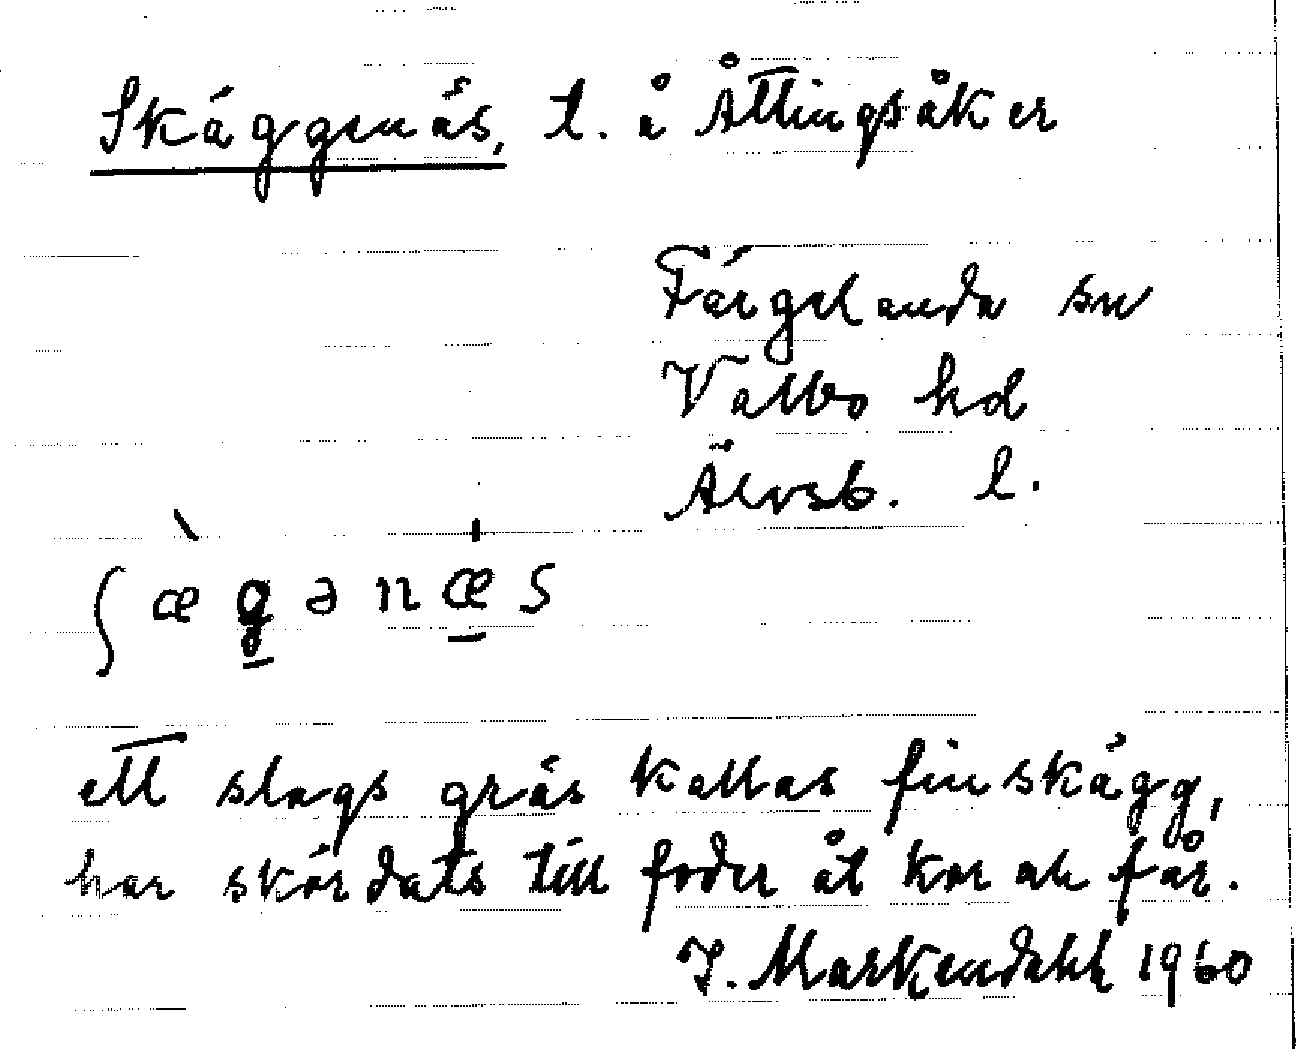 Skäggnäs, t. å Åttingsåker
Färgelanda sn
Valbo hd
Älvsb. l.
ʃæ̀gənæs
ett slags gräs kallas finskägg,
har skördats till foder åt kor och får.
J. Markendahl 1960